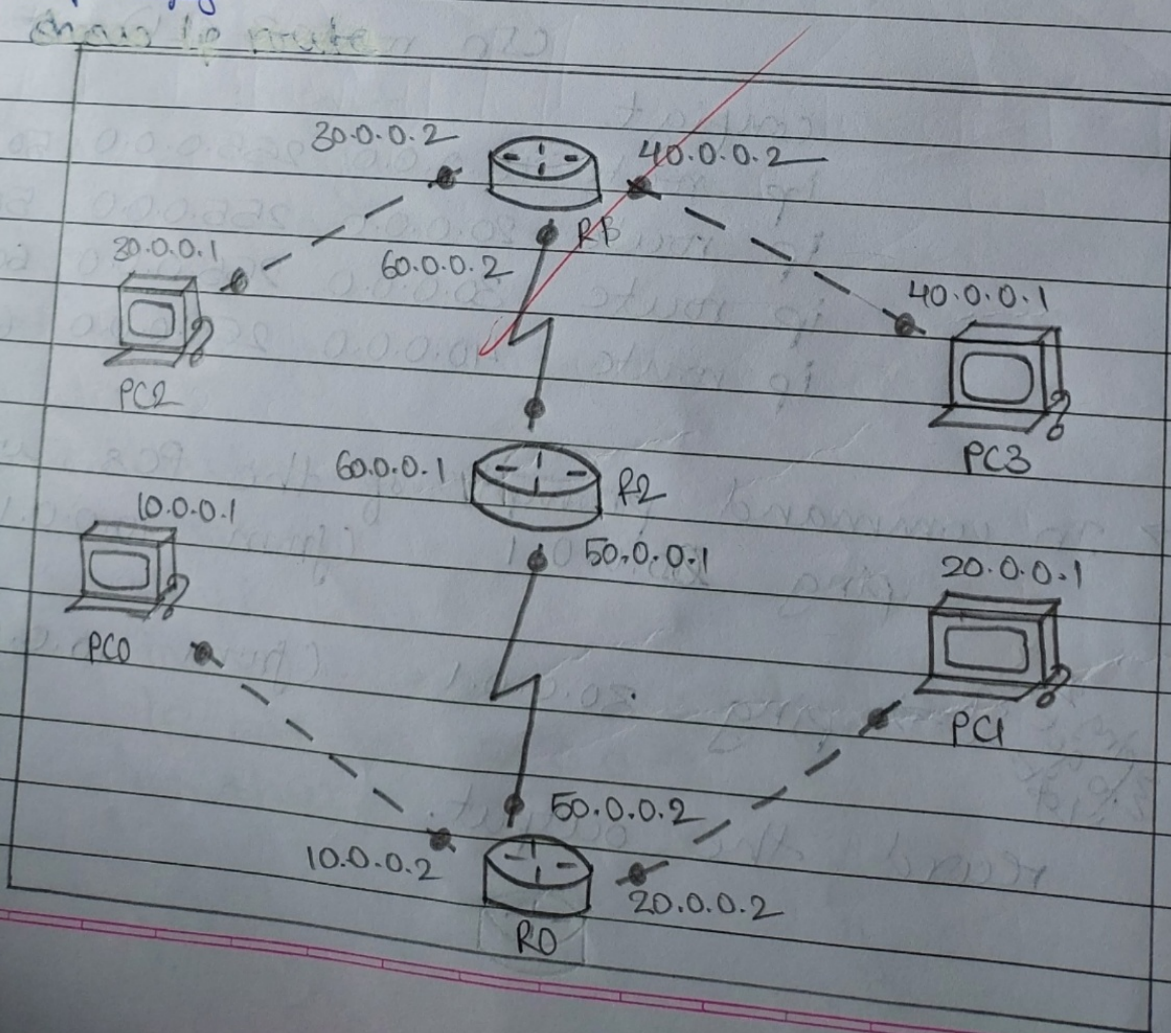 show ip route
30.0.0.2
40.0.0.2
30.0.0.1
60.0.0.2
40.0.0.1
PC2
PC3
60.0.0.1
R2
10.0.0.1
50.0.0.1
20.0.0.1
PC0
PC1
50.0.0.2
10.0.0.2
20.0.0.2
R0